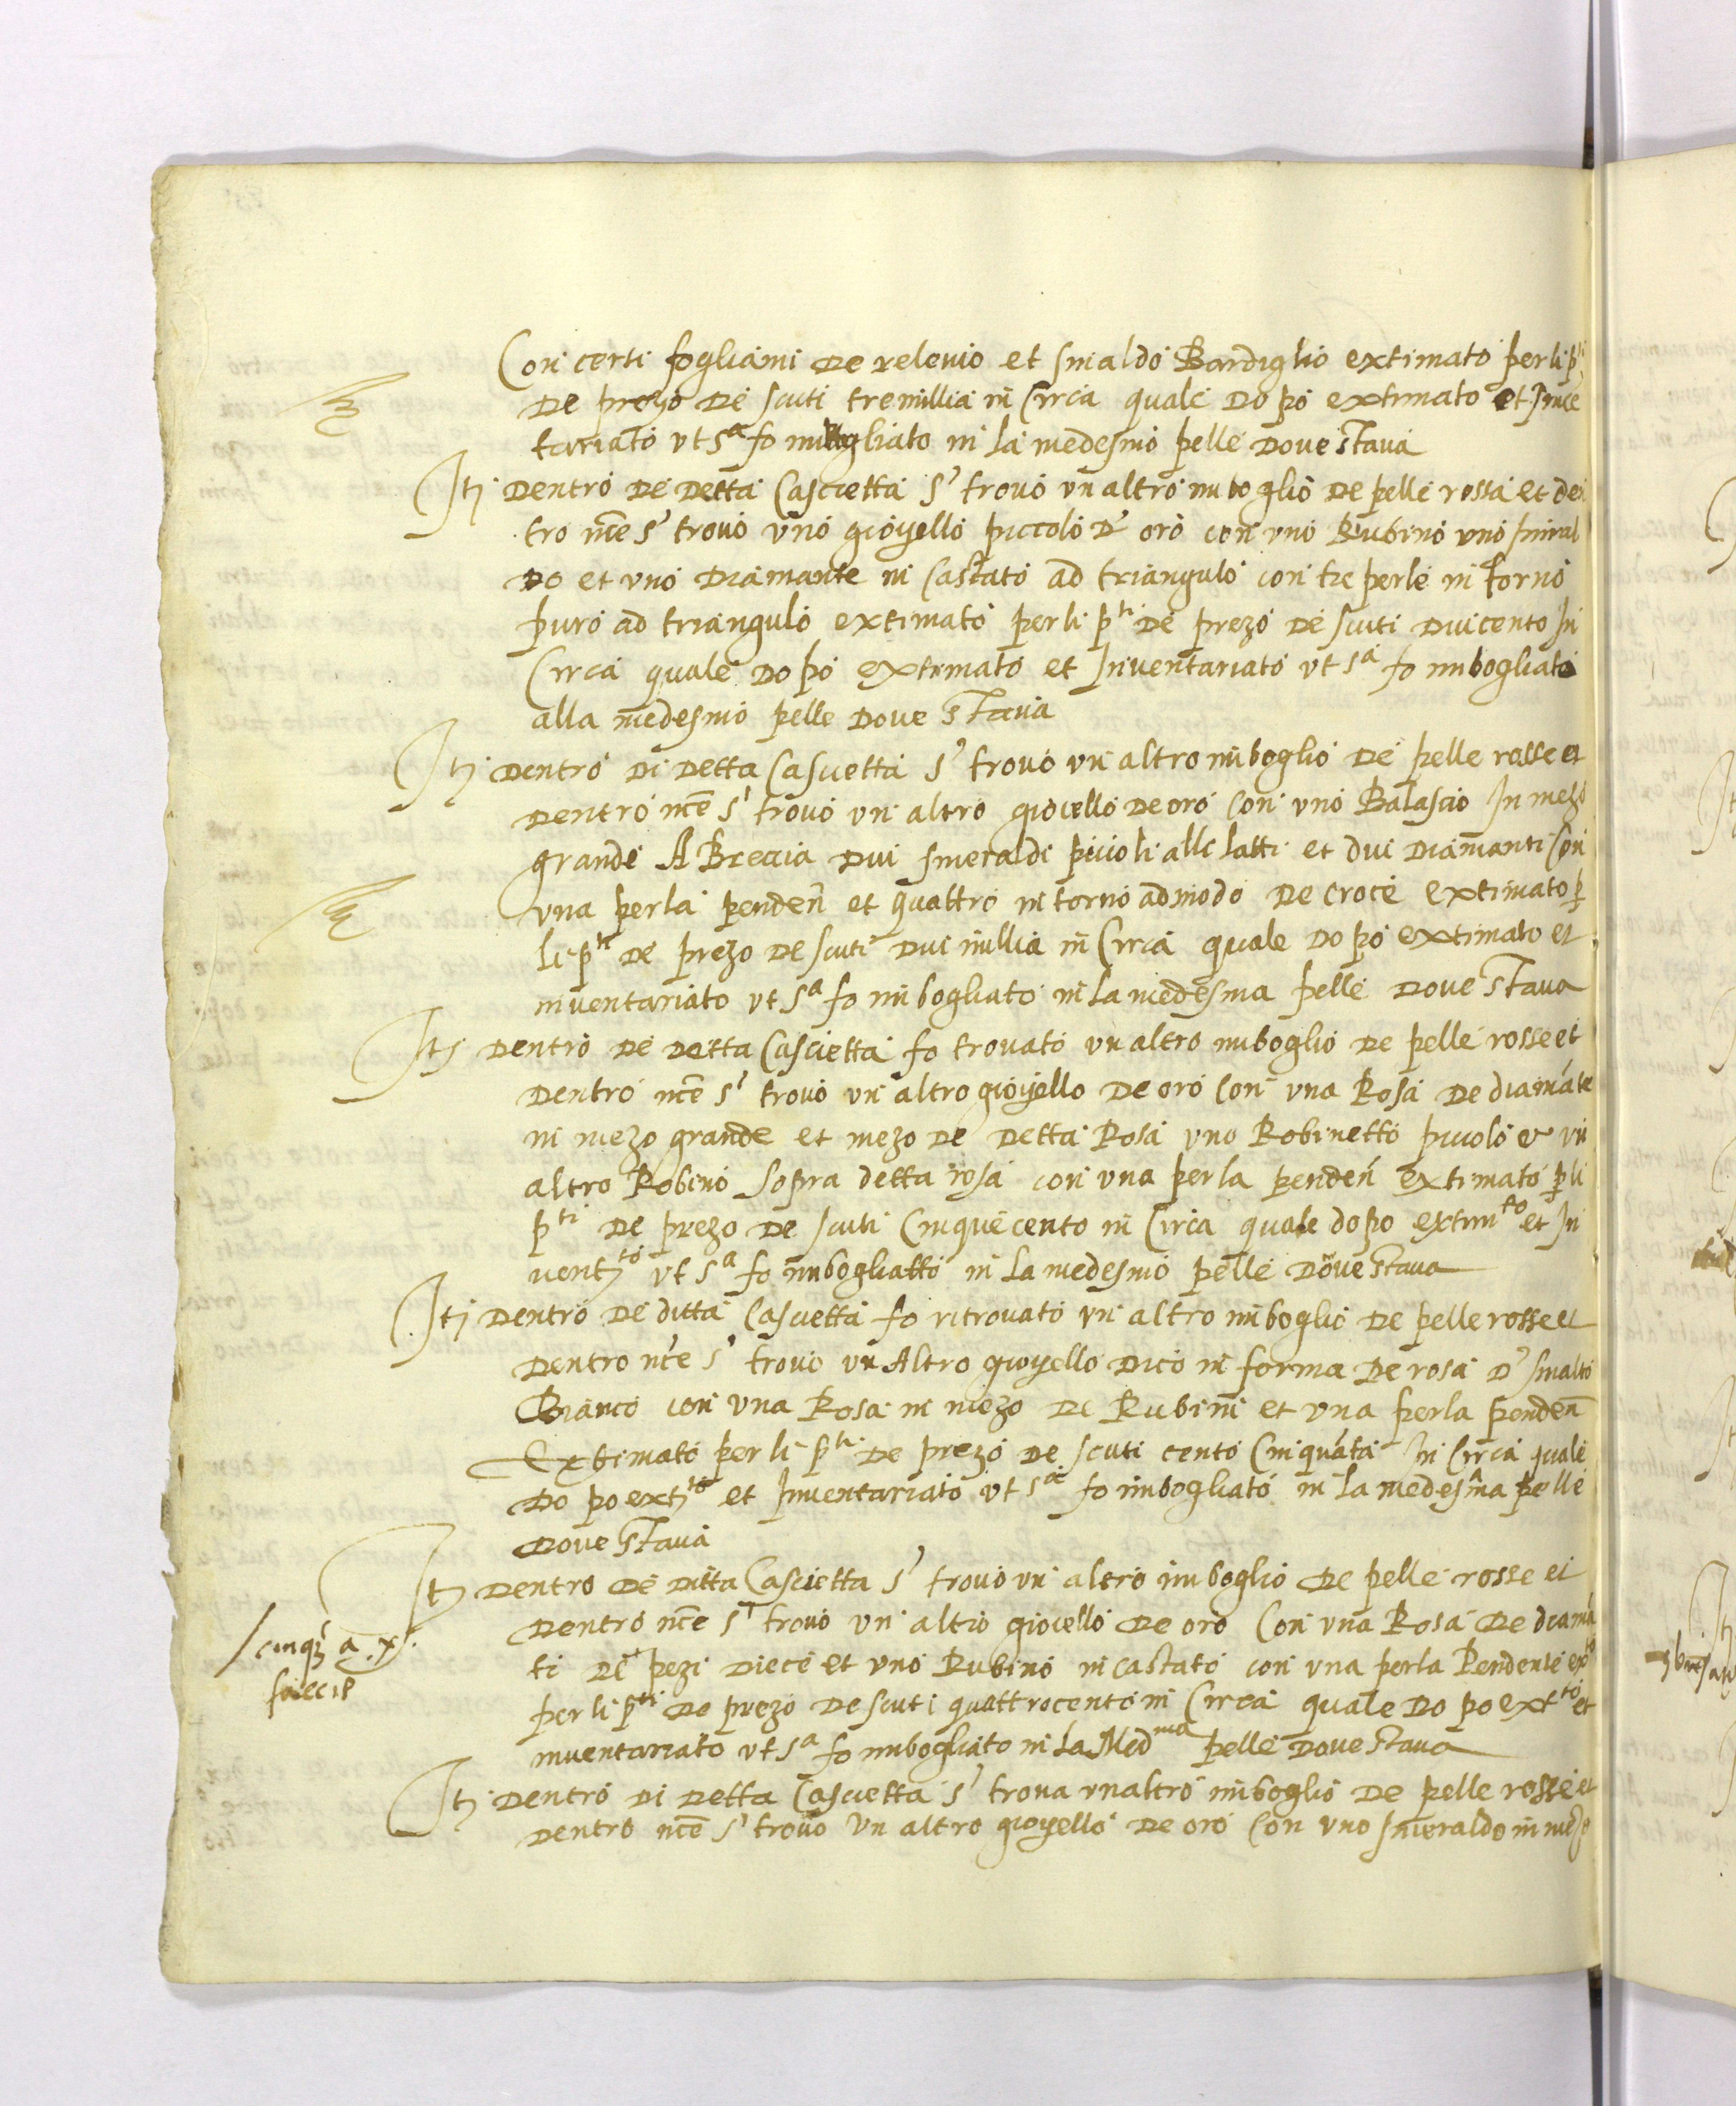 Con certi fogliami de relevio et smaldo Bardiglio extimato per li p.ti
de prezo de scuti tremillia in Circa quale dopo extimato et Inve
tariato ut s.a fo imbogliato in la medesmo pelle dove stava
Itj dentro de detta Cascietta s' trovò un altro imboglio de pelle rossa et de
tro nce s' trovò uno gioyello piccolo d' oro con uno Rubino uno smiral
do et uno Diamante in Castato ad triangulo con tre perle in torno
puro ad triangulo extimato per li p.ti de prezo de scuti Duicento In
Circa quale dopo extimato et Inventariato ut s.a fo imbogliato
alla medesmo pelle dove stava
Itj dentro di detta Cascietta s' trovò un altro imboglio de pelle rosse et
dentro nce s' trovò un altro giocello de oro con uno Balascio In mezo
grande A Breccia dui smeraldi piccoli alli latti et dui Diamanti Con
una perla penden et quattro in torno ad modo de croce extimato p
li p.ti de prezo de scuti Dui millia in Circa quale dopo extimato et
inventariato ut s.a fo imbogliato in la medesma pelle dove stava
Itj dentro de detta Cascietta fo trovato un altro imboglio de pelle rosse et
dentro nce s' trovò un altro gioyello de oro con una Rosa de diamāte
in mezo grande et mezo de detta Rosa uno Robinetto piccolo et un
altro Robino sopra detta rosa con una perla penden extimato p li
p.ti de prezo de scuti Cinquecento in Circa quale dopo extim.to et In
ventj.to ut s.a fo imbogliatto in la medesmo pelle dove stava
Itj dentro de ditta Cascietta fo ritrovato un altro imboglio de pelle rosse et
dentro nce s' trovò un Altro gioyello dico in forma de rosa d' smalto
Bianco con una Rosa in mezo de Rubini et una perla penden
Extimato per li p.ti de prezo de scuti cento Cinquāta In Circa quale
dopo extj.to et Inventariato ut s.a fo imbogliato in la medesma pelle
dove stava
Itj dentro de ditta Cascietta s' trovò un altro imboglio de pelle rosse et
dentro nce s' trovò un altro giocello de oro con una Rosa de diamā
ti de pezi diece et uno Rubino incastato con una perla Pendente ext.to
per li p.ti de prezo de scuti quattrocento in Circa quale dopo ext.to et
inventariato ut s.a fo imbogliato in la Med.ma pelle dove stava
Itj dentro di detta Cascietta s' trova un altro imboglio de pelle rosse et
dentro nce s' trovò un altro gioyello de oro con uno smeraldo in mezo